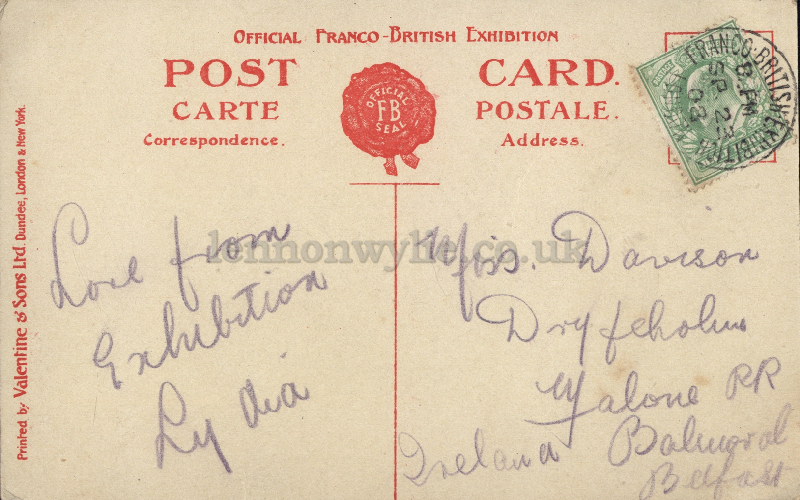 OFFICIAL FRANCO-BRITISH EXHIBITION
POST CARD.
CARTE POSTALE.
Correspondence. Address.
OFFICIAL
F·B
SEAL
FRANCO-BRITISH EXHIBITION
8. PM
SP 23
08
Printed by Valentine & Sons Ltd. Dundee, London & New York.
lennonwylie.co.uk
Love from
Exhibition
Lydia
Miss. Davison
Dryfeholm
Malone RR
Balmoral
Ireland Belfast